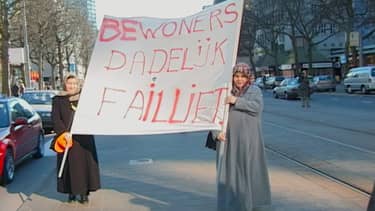 BEWONERS
DADELIJK
FAILLIET